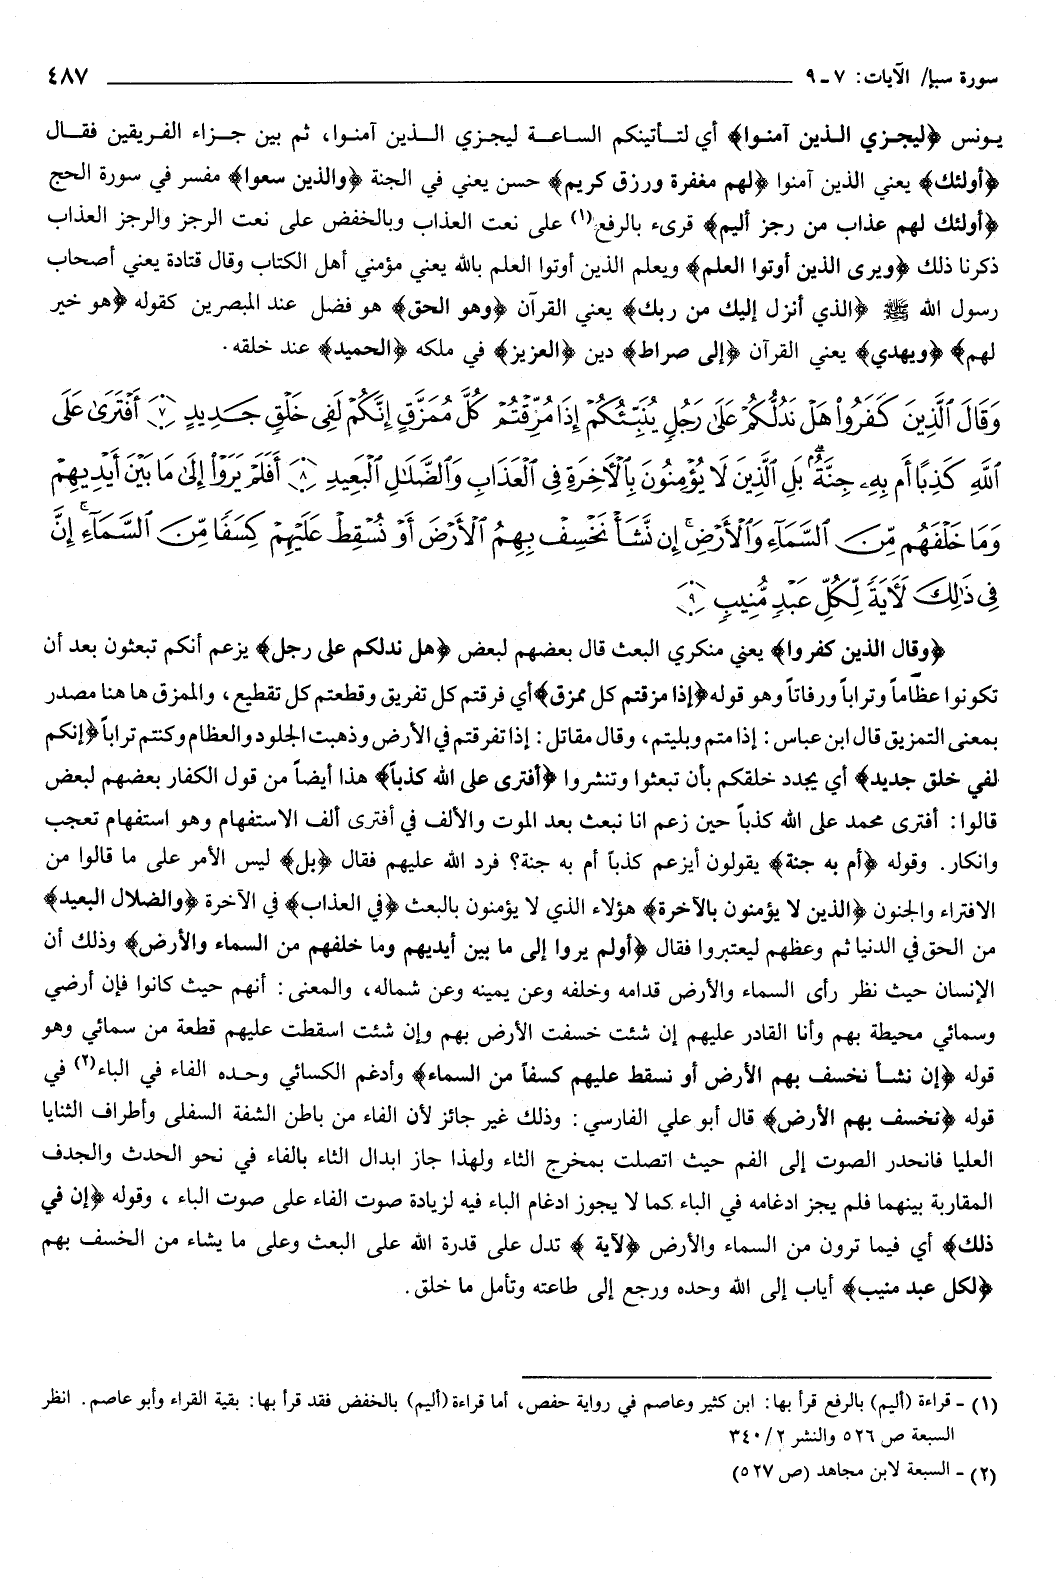 سورة سبإ/ الآيات: ٧ ـ ٩ ٤٨٧
يـونس ﴿ليجزي الـذين آمنـوا﴾ أي لتـأتينكم الساعـة ليجزي الـذين آمنـوا، ثم بين جـزاء الفـريقين فقـال
﴿أولئك﴾ يعني الذين آمنوا ﴿لهم مغفرة ورزق كريم﴾ حسن يعني في الجنة ﴿والذين سعوا﴾ مفسر في سورة الحج
﴿أولئك لهم عذاب من رجز أليم﴾ قرىء بالرفع(١) على نعت العذاب وبالخفض على نعت الرجز والرجز العذاب
ذكرنا ذلك ﴿ويرى الذين أوتوا العلم﴾ ويعلم الذين أوتوا العلم بالله يعني مؤمني أهل الكتاب وقال قتادة يعني أصحاب
رسول الله ﷺ ﴿الذي أنزل إليك من ربك﴾ يعني القرآن ﴿وهو الحق﴾ هو فضل عند المبصرين كقوله ﴿هو خير
لهم﴾ ﴿ويهدي﴾ يعني القرآن ﴿إلى صراط﴾ دين ﴿العزيز﴾ في ملكه ﴿الحميد﴾ عند خلقه.
وَقَالَ ٱلَّذِينَ كَفَرُوا۟ هَلْ نَدُلُّكُمْ عَلَىٰ رَجُلٍ يُنَبِّئُكُمْ إِذَا مُزِّقْتُمْ كُلَّ مُمَزَّقٍ إِنَّكُمْ لَفِى خَلْقٍ جَدِيدٍ ٧ أَفْتَرَىٰ عَلَى
ٱللَّهِ كَذِبًا أَم بِهِۦ جِنَّةٌۢ ۗ بَلِ ٱلَّذِينَ لَا يُؤْمِنُونَ بِٱلْءَاخِرَةِ فِى ٱلْعَذَابِ وَٱلضَّلَٰلِ ٱلْبَعِيدِ ٨ أَفَلَمْ يَرَوْا۟ إِلَىٰ مَا بَيْنَ أَيْدِيهِمْ
وَمَا خَلْفَهُم مِّنَ ٱلسَّمَآءِ وَٱلْأَرْضِ ۚ إِن نَّشَأْ نَخْسِفْ بِهِمُ ٱلْأَرْضَ أَوْ نُسْقِطْ عَلَيْهِمْ كِسَفًا مِّنَ ٱلسَّمَآءِ ۚ إِنَّ
فِى ذَٰلِكَ لَءَايَةً لِّكُلِّ عَبْدٍ مُّنِيبٍ ٩
﴿وقال الذين كفروا﴾ يعني منكري البعث قال بعضهم لبعض ﴿هل ندلكم على رجل﴾ يزعم أنكم تبعثون بعد أن
تكونوا عظاماً وتراباً ورفاتاً وهو قوله ﴿إذا مزقتم كل ممزق﴾ أي فرقتم كل تفريق وقطعتم كل تقطيع، والممزق ها هنا مصدر
بمعنى التمزيق قال ابن عباس: إذا متم وبليتم، وقال مقاتل: إذا تفرقتم في الأرض وذهبت الجلود والعظام وكنتم تراباً ﴿إنكم
لفي خلق جديد﴾ أي يجدد خلقكم بأن تبعثوا وتنشروا ﴿أفترى على الله كذباً﴾ هذا أيضاً من قول الكفار بعضهم لبعض
قالوا: أفترى محمد على الله كذباً حين زعم انا نبعث بعد الموت والألف في أفترى ألف الاستفهام وهو استفهام تعجب
وانكار. وقوله ﴿أم به جنة﴾ يقولون أيزعم كذباً أم به جنة؟ فرد الله عليهم فقال ﴿بل﴾ ليس الأمر على ما قالوا من
الافتراء والجنون ﴿الذين لا يؤمنون بالآخرة﴾ هؤلاء الذي لا يؤمنون بالبعث ﴿في العذاب﴾ في الآخرة ﴿والضلال البعيد﴾
من الحق في الدنيا ثم وعظهم ليعتبروا فقال ﴿أولم يروا إلى ما بين أيديهم وما خلفهم من السماء والأرض﴾ وذلك أن
الإنسان حيث نظر رأى السماء والأرض قدامه وخلفه وعن يمينه وعن شماله، والمعنى: أنهم حيث كانوا فإن أرضي
وسمائي محيطة بهم وأنا القادر عليهم إن شئت خسفت الأرض بهم وإن شئت اسقطت عليهم قطعة من سمائي وهو
قوله ﴿إن نشـأ نخسف بهم الأرض أو نسقط عليهم كسفاً من السماء﴾ وأدغم الكسائي وحـده الفاء في الباء(٢) في
قوله ﴿نخسف بهم الأرض﴾ قال أبو علي الفارسي: وذلك غير جائز لأن الفاء من باطن الشفة السفلى وأطراف الثنايا
العليا فانحدر الصوت إلى الفم حيث اتصلت بمخرج الثاء ولهذا جاز ابدال الثاء بالفاء في نحو الحدث والجدف
المقاربة بينهما فلم يجز ادغامه في الباء كما لا يجوز ادغام الباء فيه لزيادة صوت الفاء على صوت الباء، وقوله ﴿إن في
ذلك﴾ أي فيما ترون من السماء والأرض ﴿لآية﴾ تدل على قدرة الله على البعث وعلى ما يشاء من الخسف بهم
﴿لكل عبد منيب﴾ أياب إلى الله وحده ورجع إلى طاعته وتأمل ما خلق.
(١) ـ قراءة (أليم) بالرفع قرأ بها: ابن كثير وعاصم في رواية حفص، أما قراءة (أليم) بالخفض فقد قرأ بها: بقية القراء وأبو عاصم. انظر
السبعة ص ٥٢٦ والنشر ٢/ ٣٤٠
(٢) ـ السبعة لابن مجاهد (ص ٥٢٧)